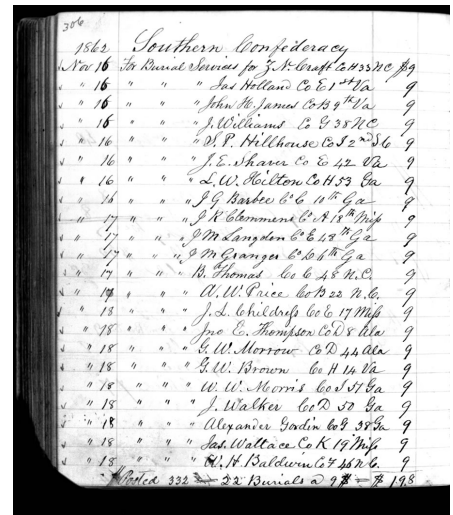 306
1862 Southern Confederacy
Nov 16 For Burial Services for Z. N. Craft Co H 33 NC $9
" 16 " " " Jas Holland Co E 1st Va 9
" 16 " " " John H. James Co B 9th Va 9
" 16 " " " J. Williams Co G 38 NC 9
" 16 " " " S. P. Hillhouse Co I 2nd S C 9
" 16 " " " J. E. Sharer Co E 42 Va 9
" 16 " " " L. W. Hilton Co H 53 Ga 9
" 16 " " " J G Barbee Co C 10th Ga 9
" 17 " " " J K Clemmens Co A 18th Miſs 9
" 17 " " " J M Langdon Co E 48th Ga 9
" 17 " " " J M Granger Co 6th Ga 9
" 17 " " " B. Thomas Co C 48 N.C. 9
" 17 " " " A. W. Price Co B 22 N.C. 9
" 18 " " " J. L. Childreſs Co E 17 Miſs 9
" 18 " " " Jno E. Thompson Co D 8 Ala 9
" 18 " " " G. W. Morrow Co D 44 Ala 9
" 18 " " " G. W. Brown Co H 14 Va 9
" 18 " " " W. W. Morris Co I 51 Ga 9
" 18 " " " J. Walker Co D 50 Ga 9
" 18 " " " Alexander Gordin Co G 38 Ga 9
" 18 " " " Jas. Wallace Co K 19 Miſs 9
" 18 " " " W. H. Baldwin Co F 46 N.C. 9
Posted 332 22 Burials a 9 $ = $ 198